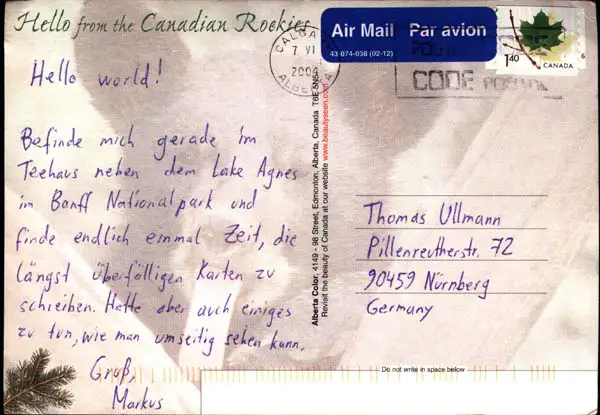 Hello from the Canadian Rockies
Air Mail Par avion
43-074-038 (02-12)
CALGARY
7 VI
ALBERTA
CODE POSTAL
1.40
CANADA
Hello world!
Befinde mich gerade im
Teehaus neben dem Lake Agnes
im Banff Nationalpark und
finde endlich einmal Zeit, die
längst überfälligen Karten zu
schreiben. Hatte aber auch einiges
zu tun, wie man umseitig sehen kann.
Gruß,
Markus
Alberta Color, 4149 - 96 Street, Edmonton, Alberta, Canada T6E
Revisit the beauty of Canada at our website www.beautyseen.com
Thomas Ullmann
Pillenreutherstr. 72
90459 Nürnberg
Germany
Do not write in space below